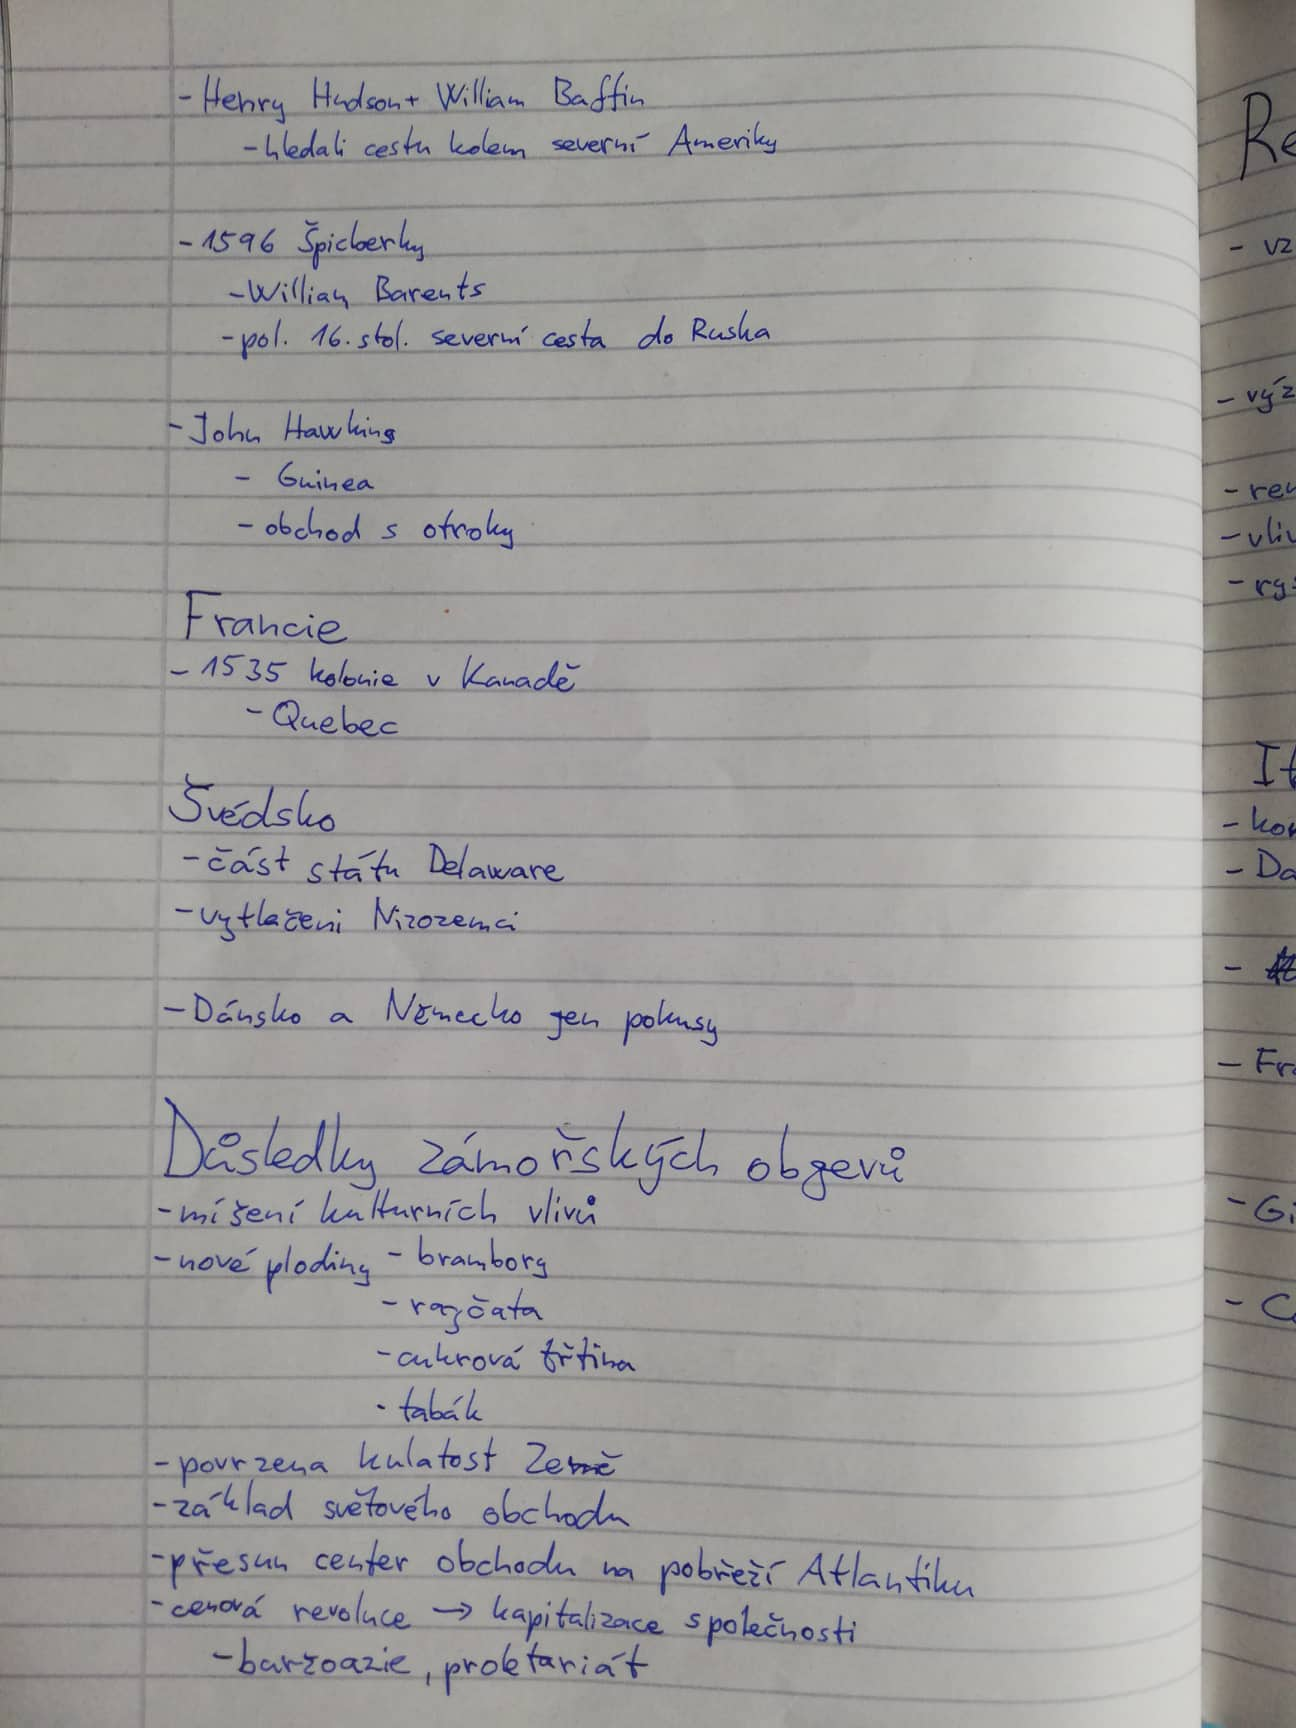 - Henry Hudson + William Baffin
- hledali cestu kolem severní Ameriky
- 1596 Špicberky
- Willian Barents
- pol. 16. stol. severní cesta do Ruska
- John Hawking
- Guinea
- obchod s otroky
Francie
- 1535 kolonie v Kanadě
- Quebec
Švédsko
- část státu Delaware
- vytlačeni Nizozemci
- Dánsko a Německo jen pokusy
Důsledky zámořských objevů
- míšení kulturních vlivů
- nové plodiny - brambory
- rajčata
- cukrová třtina
- tabák
- povrzena kulatost Země
- základ světového obchodu
- přesun center obchodu na pobřeží Atlantiku
- cenová revoluce → kapitalizace společnosti
- buržoazie, proletariát